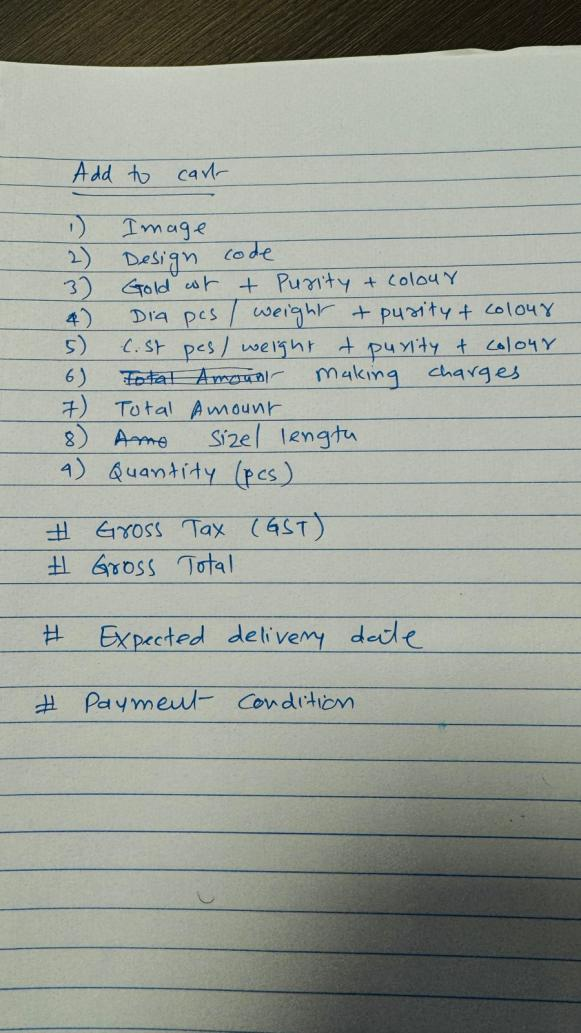 Add to cart
1) Image
2) Design code
3) Gold wt + Purity + colour
4) Dia pcs / weight + purity + colour
5) C.st pcs / weight + purity + colour
6) Total Amount making charges
7) Total Amount
8) Amo Size / length
9) Quantity (pcs)
# Gross Tax (GST)
# Gross Total
# Expected delivery date
# Payment condition